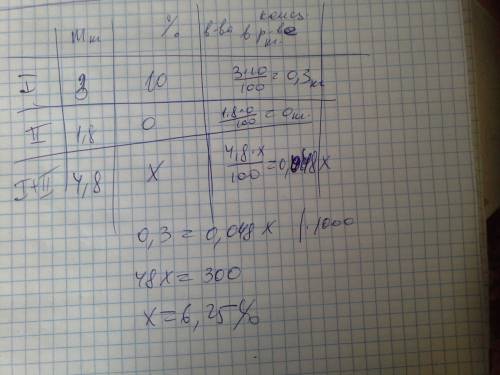 m кг % в-ва в р-ве конц кг.
I 3 10 3·10/100 = 0,3 кг
II 1,8 0 1,8·0/100 = 0 кг.
I+II 4,8 x 4,8·x/100 = 0,048x
0,3 = 0,048x /·1000
48x = 300
x = 6,25%